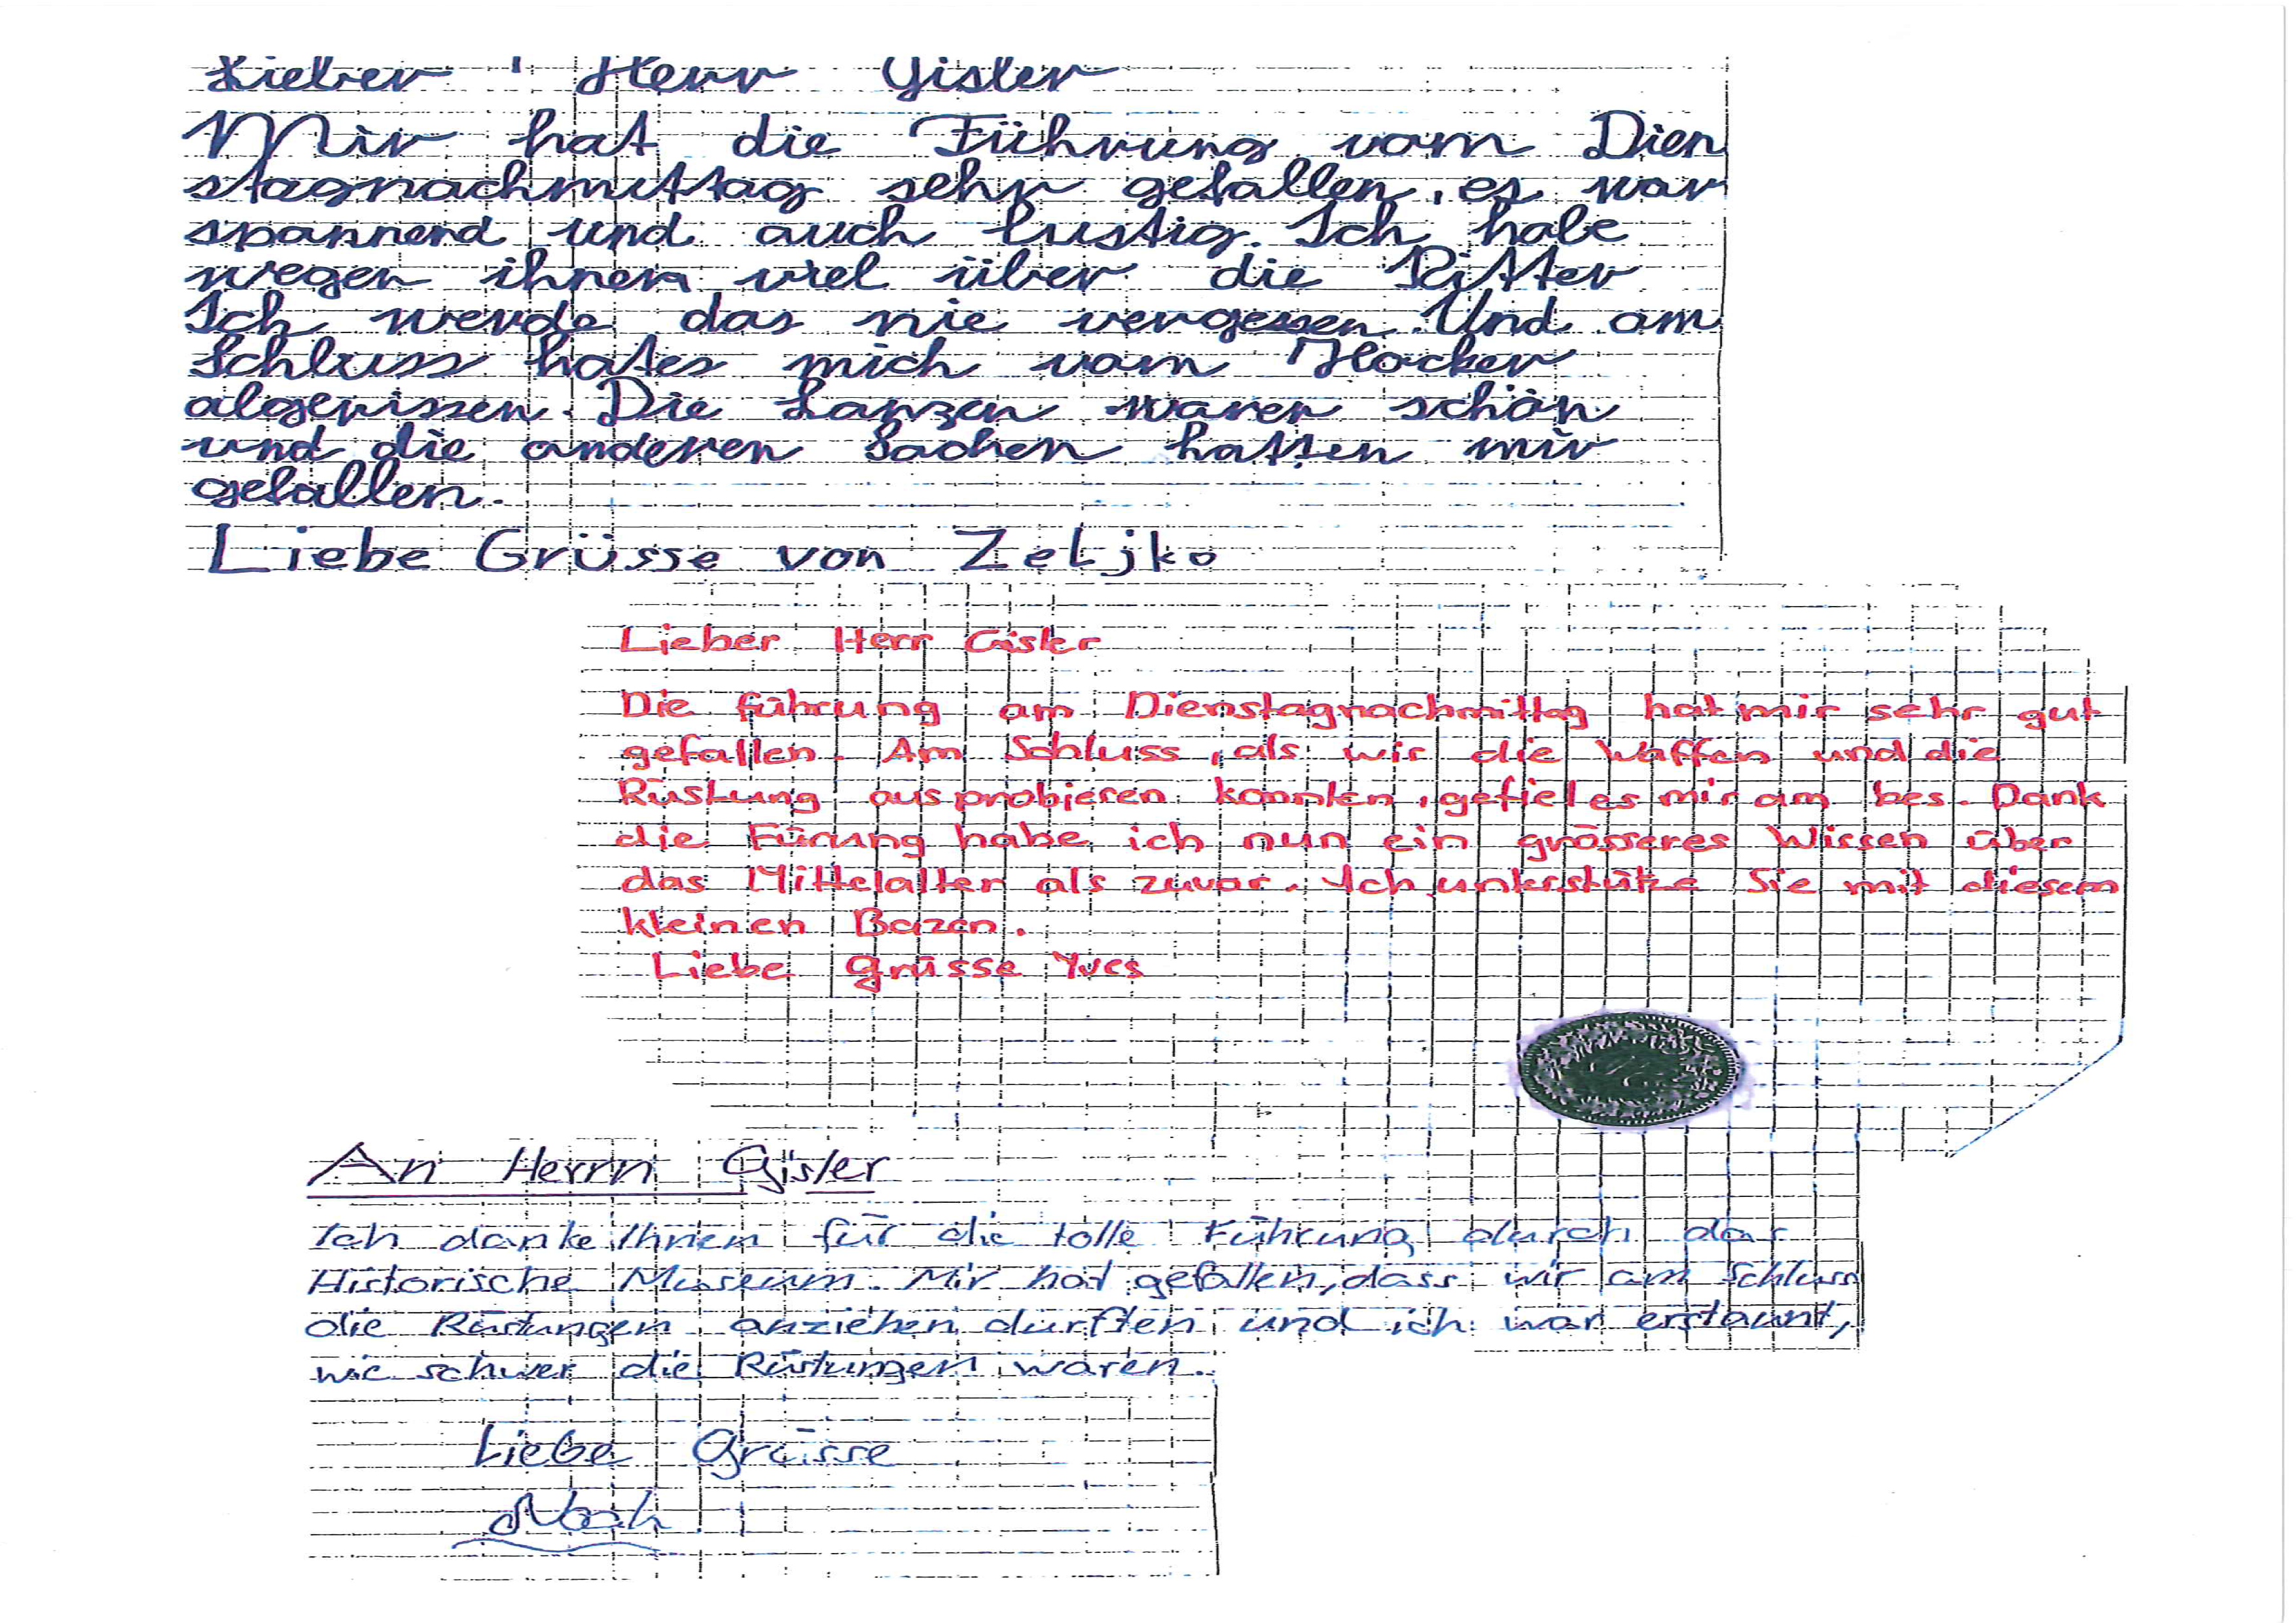 Lieber Herr Gisler
Mir hat die Führung vom Dien
stagnachmittag sehr gefallen, es war
spannend und auch lustig. Ich habe
wegen ihnen viel über die Ritter
Ich werde das nie vergessen. Und am
Schluss hates mich vom Hocker
abgerissen. Die Lanzen waren schön
und die anderen Sachen hatten mir
gefallen.
Liebe Grüsse von Zeljko
Lieber Herr Gisler
Die führung am Dienstagnachmittag hat mir sehr gut
gefallen. Am Schluss, als wir die Waffen und die
Rüstung ausprobieren konnten, gefiel es mir am bes. Dank
die Fürung habe ich nun ein grösseres Wissen über
das Mittelalter als zuvor. Ich unterstütze Sie mit diesem
kleinen Bazen.
Liebe Grüsse Yves
An Herrn Gisler
Ich danke Ihnen für die tolle Führung durch das
Historische Museum. Mir hat gefallen, dass wir am Schluss
die Rüstungen anziehen durften und ich war erstaunt,
wie schwer die Rüstungen waren.
Liebe Grüsse
Noah